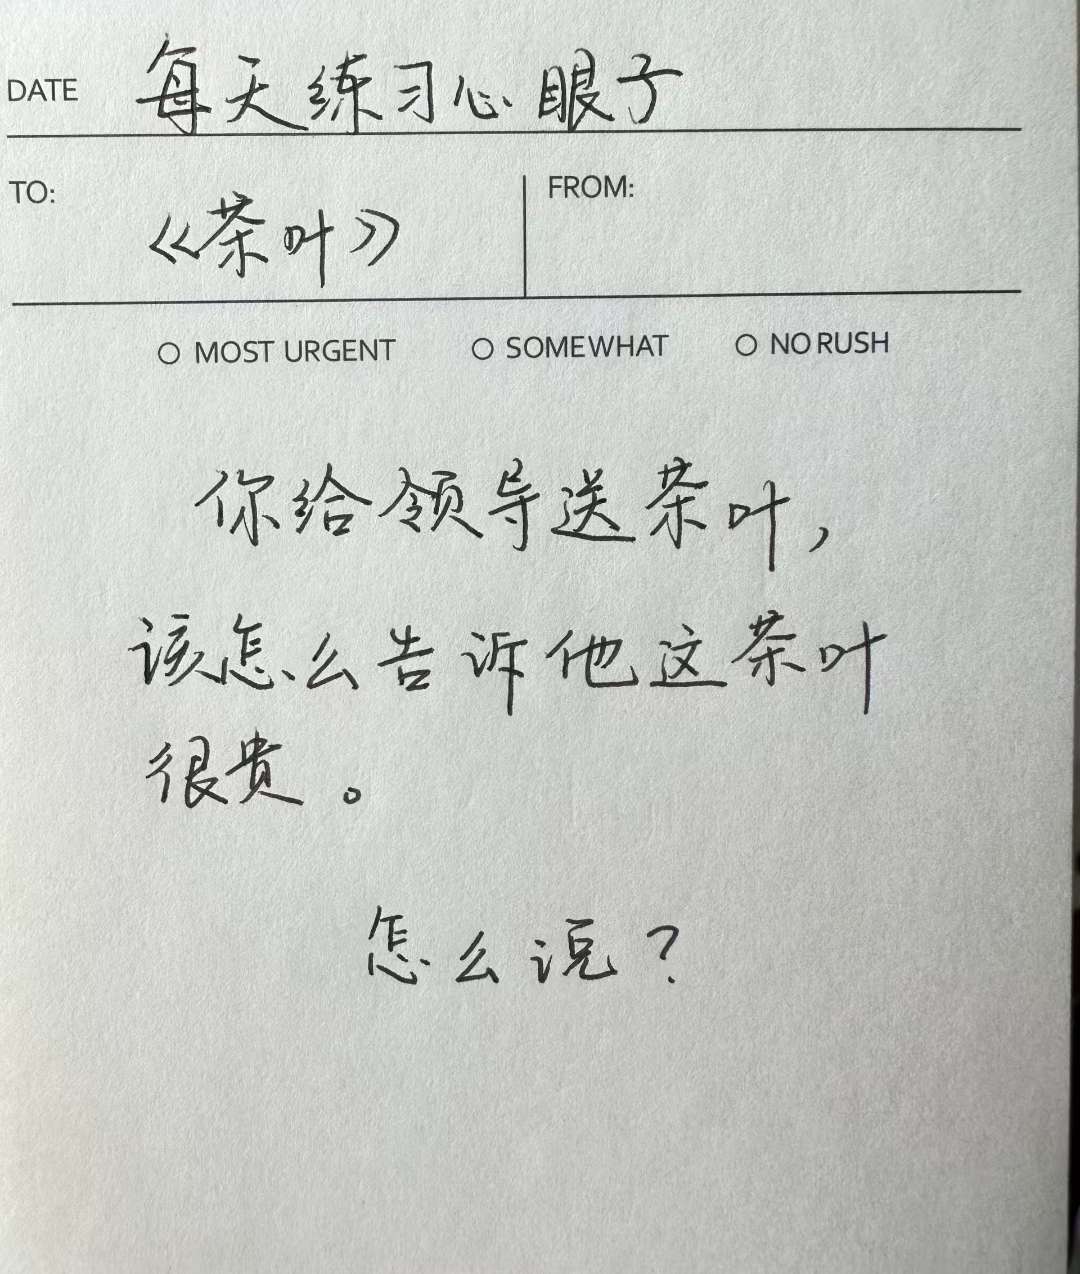 DATE 每天练习心眼子
TO: 《茶叶》 FROM:
MOST URGENT SOMEWHAT NO RUSH
你给领导送茶叶,
该怎么告诉他这茶叶
很贵。
怎么说?